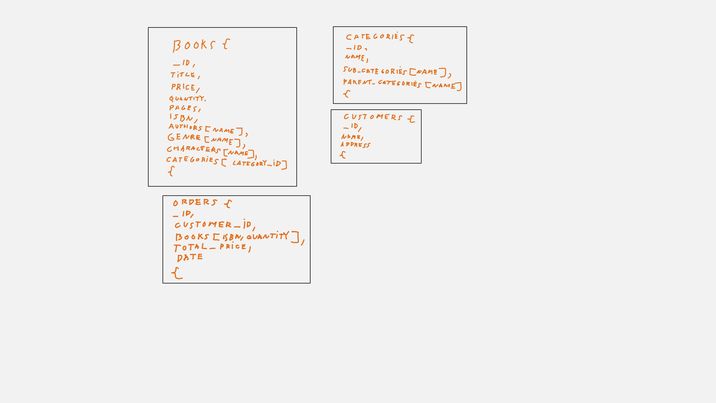 BOOKS {
_ID,
TITLE,
PRICE,
QUANTITY.
PAGES,
ISBN,
AUTHORS[NAME],
GENRE[NAME],
CHARACTERS[NAME],
CATEGORIES[CATEGORY_ID]
{
CATEGORIES{
_ID,
NAME,
SUB_CATEGORIES[NAME],
PARENT_CATEGORIES[NAME]
{
CUSTOMERS {
_ID,
NAME,
ADDRESS
{
ORDERS {
_ID,
CUSTOMER_ID,
BOOKS[ISBN, QUANTITY],
TOTAL_PRICE,
DATE
{